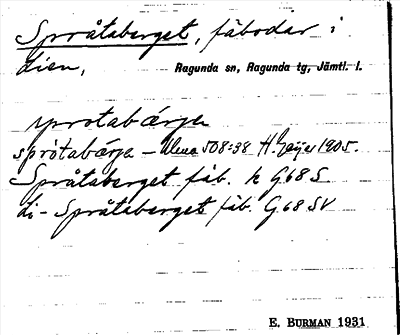 Språtaberget, fäbodar i
Lien, Ragunda sn, Ragunda tg, Jämtl. l.
sprotabærje
sprötabärje – Ulma 508:38 H. Geijer 1905.
Språtaberget fäb. k G68 S
Li-Språtaberget fäb. G 68 SV
E. BURMAN 1931